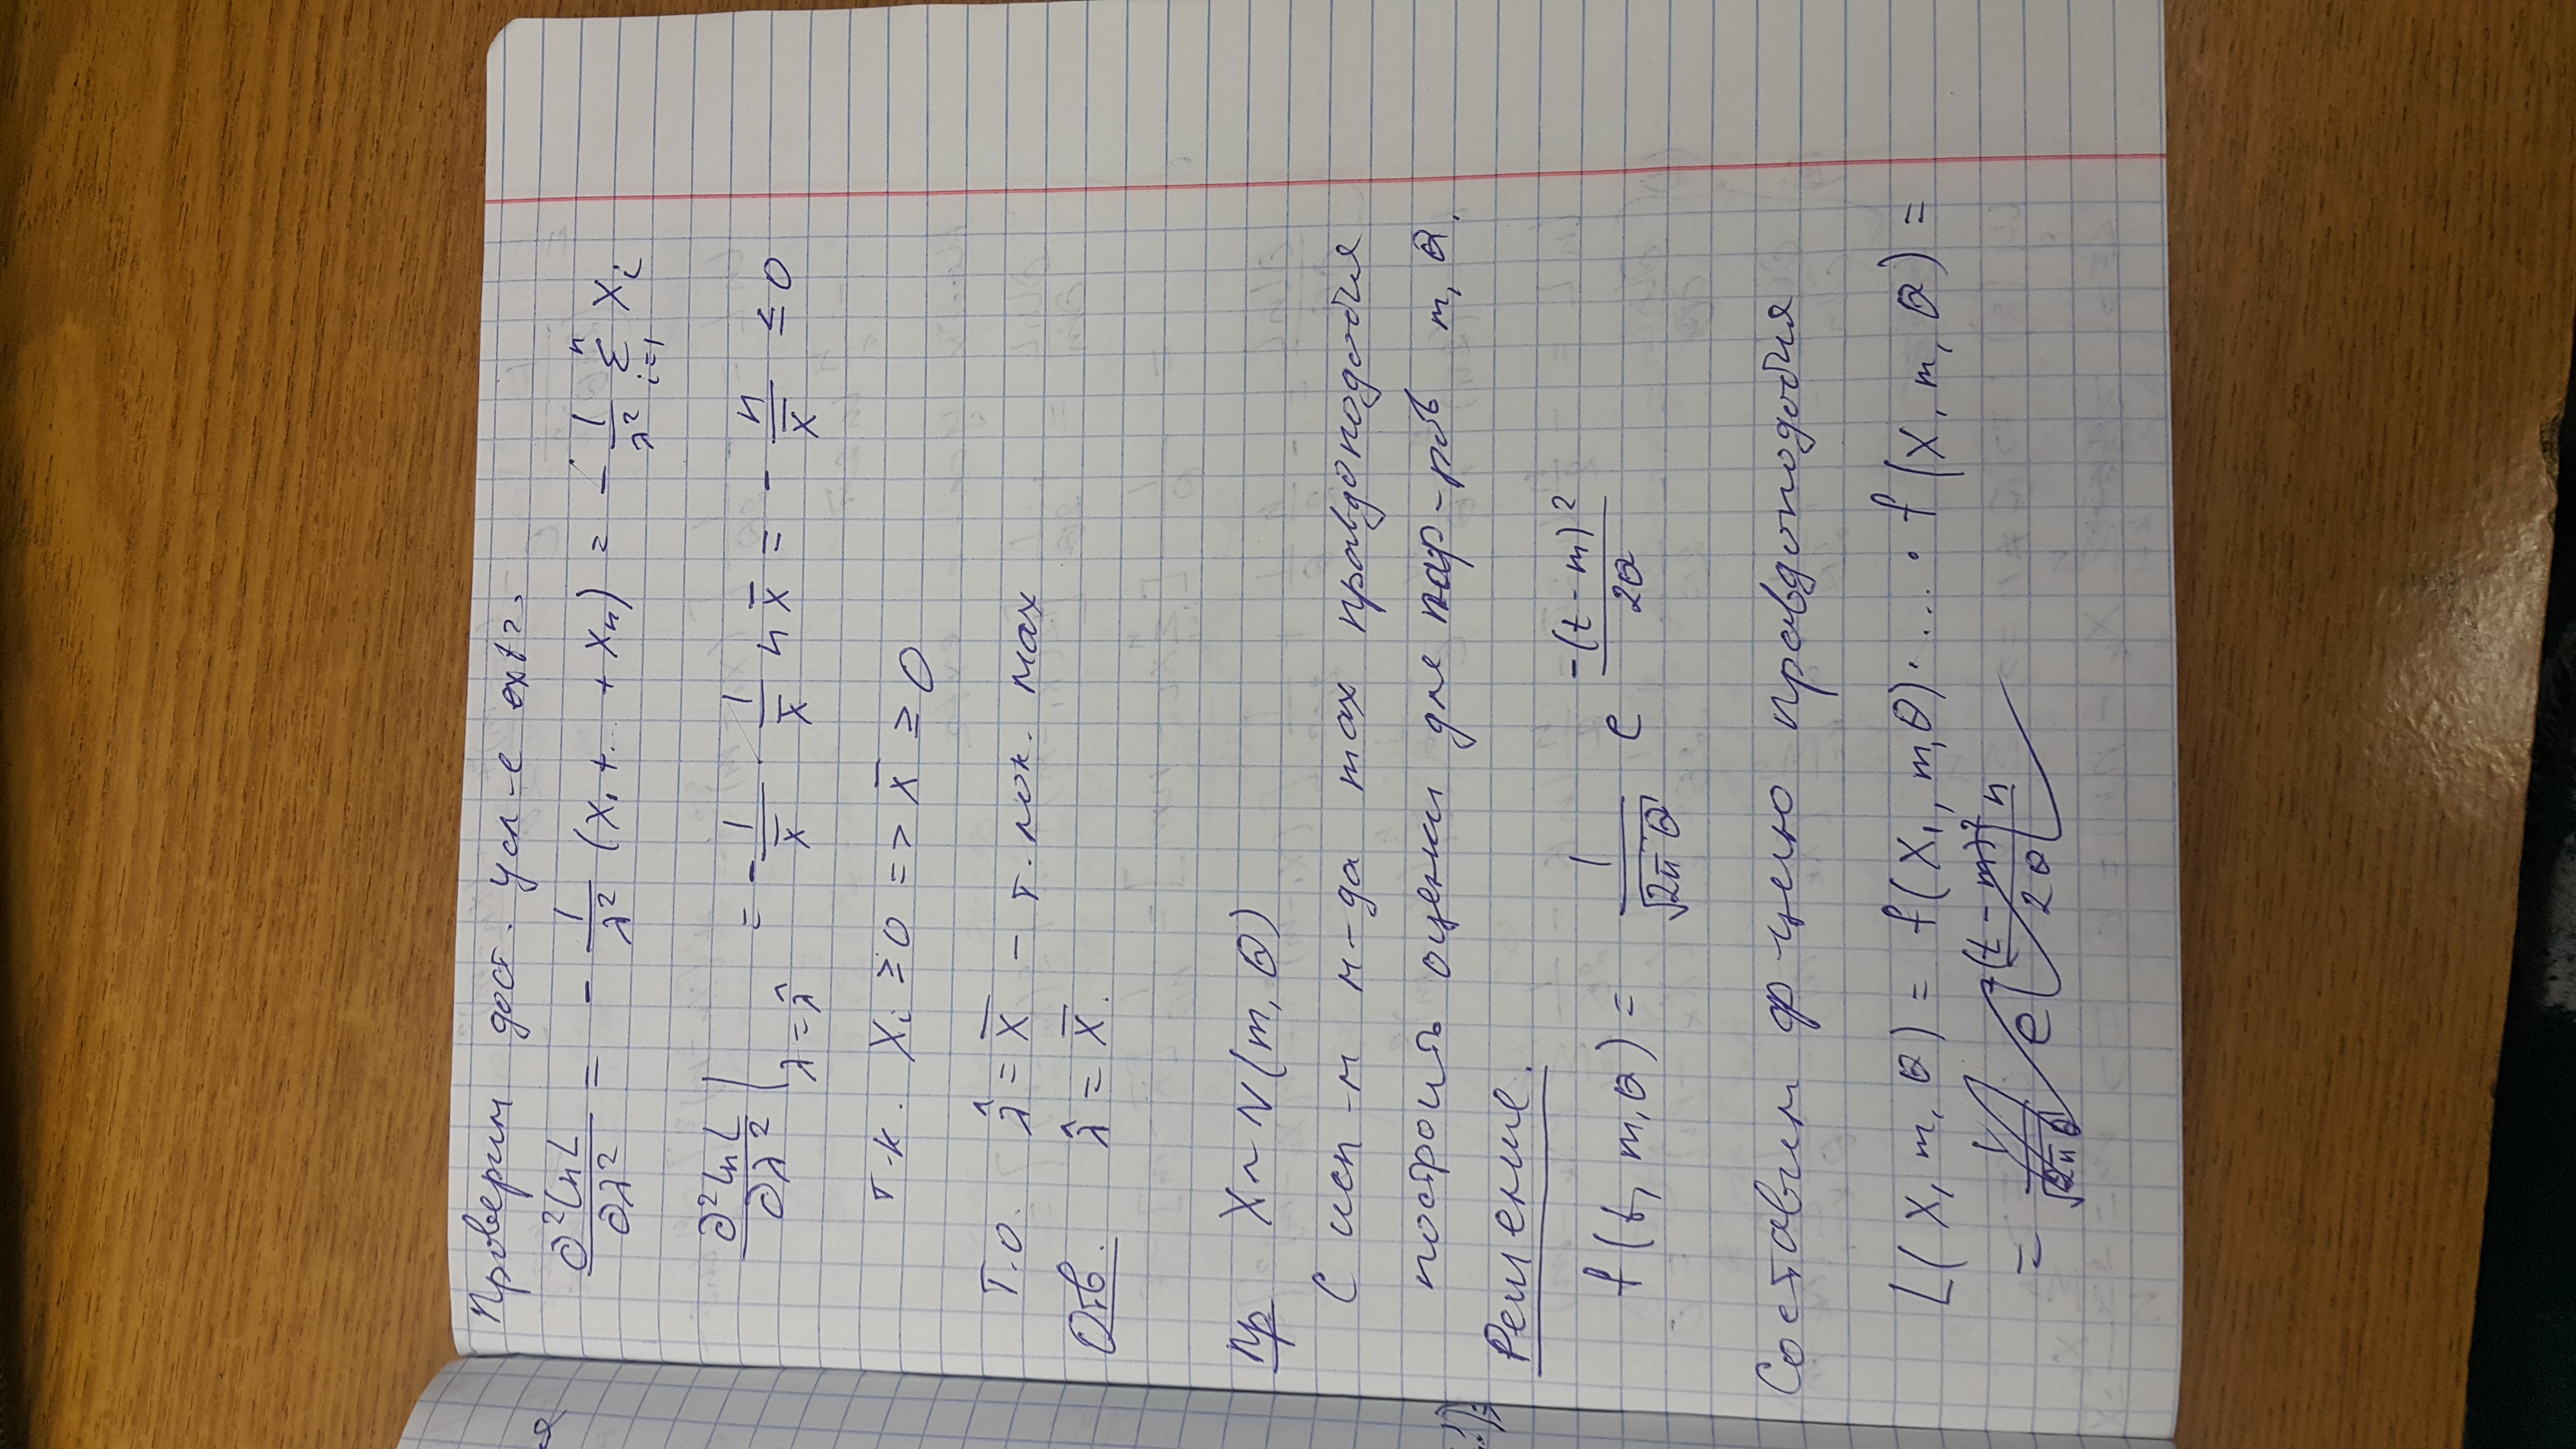 Проверим дост. усл-е extr.
∂²lnL/∂λ² = - 1/λ² (X₁+...+Xₙ) = - 1/λ² Σ_{i=1}^{n} Xᵢ
∂²lnL/∂λ² |_{λ=λ̂} = - 1/x̄ · 1/x̄ n x̄ = - n/x̄ ≤ 0
т.к. Xᵢ ≥ 0 => x̄ ≥ 0
Т.о. λ̂ = x̄ - т. лок. max
Отв. λ̂ = x̄.
Пр X ~ N(m, θ)
С исп-м м-да max правдоподобия
построить оценки для пар-ров m, θ.
Решение.
f(t, m, θ) = 1/√(2πθ) e^{-(t-m)²/2θ}
Составим ф-цию правдоподобия
L(X, m, θ) = f(X₁, m, θ)·...·f(X, m, θ) =
= 1/√(2πθ) e^{-(t-m)² n/2θ}